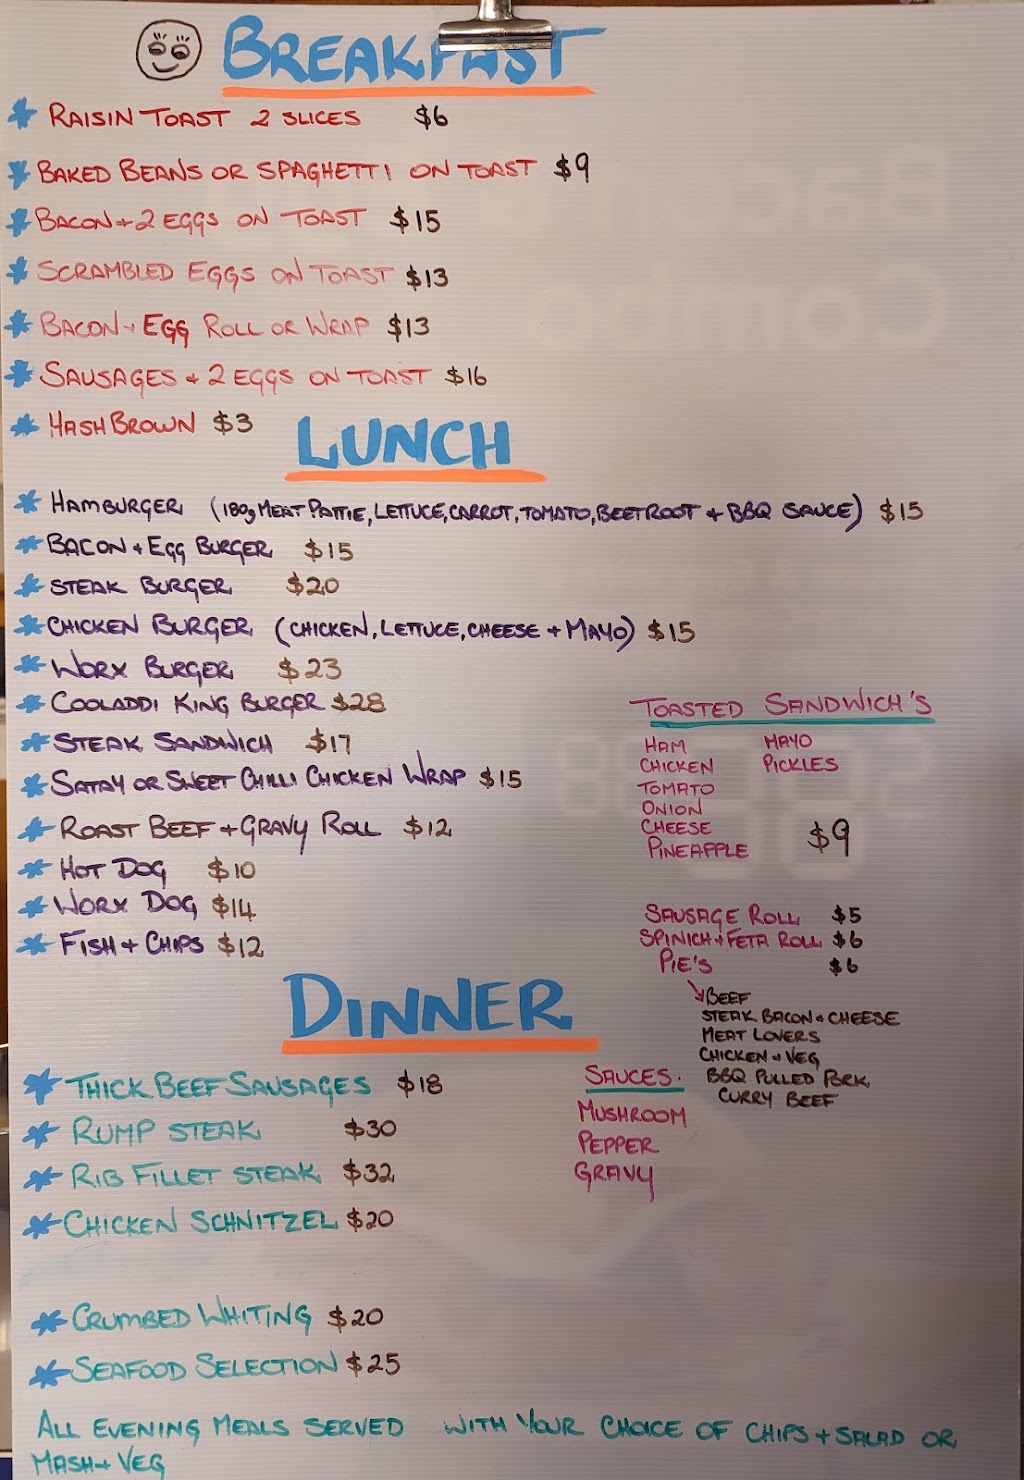 BREAKFAST
RAISIN TOAST 2 SLICES $6
BAKED BEANS OR SPAGHETTI ON TOAST $9
BACON + 2 EGGS ON TOAST $15
SCRAMBLED EGGS ON TOAST $13
BACON + EGG ROLL OR WRAP $13
SAUSAGES + 2 EGGS ON TOAST $16
HASHBROWN $3
LUNCH
HAMBURGER (180g MEAT PATTIE, LETTUCE, CARROT, TOMATO, BEETROOT + BBQ SAUCE) $15
BACON + EGG BURGER $15
STEAK BURGER $20
CHICKEN BURGER (CHICKEN, LETTUCE, CHEESE + MAYO) $15
WORX BURGER $23
COOLADDI KING BURGER $28
STEAK SANDWICH $17
SATAY OR SWEET CHILLI CHICKEN WRAP $15
ROAST BEEF + GRAVY ROLL $12
HOT DOG $10
WORX DOG $14
FISH + CHIPS $12
TOASTED SANDWICH'S
HAM MAYO
CHICKEN PICKLES
TOMATO
ONION
CHEESE
PINEAPPLE $9
SAUSAGE ROLL $5
SPINICH + FETA ROLL $6
PIE'S $6
BEEF
STEAK BACON + CHEESE
MEAT LOVERS
CHICKEN + VEG
BBQ PULLED PORK
CURRY BEEF
DINNER
THICK BEEF SAUSAGES $18
RUMP STEAK $30
RIB FILLET STEAK $32
CHICKEN SCHNITZEL $20
CRUMBED WHITING $20
SEAFOOD SELECTION $25
SAUCES.
MUSHROOM
PEPPER
GRAVY
ALL EVENING MEALS SERVED WITH YOUR CHOICE OF CHIPS + SALAD OR
MASH + VEG